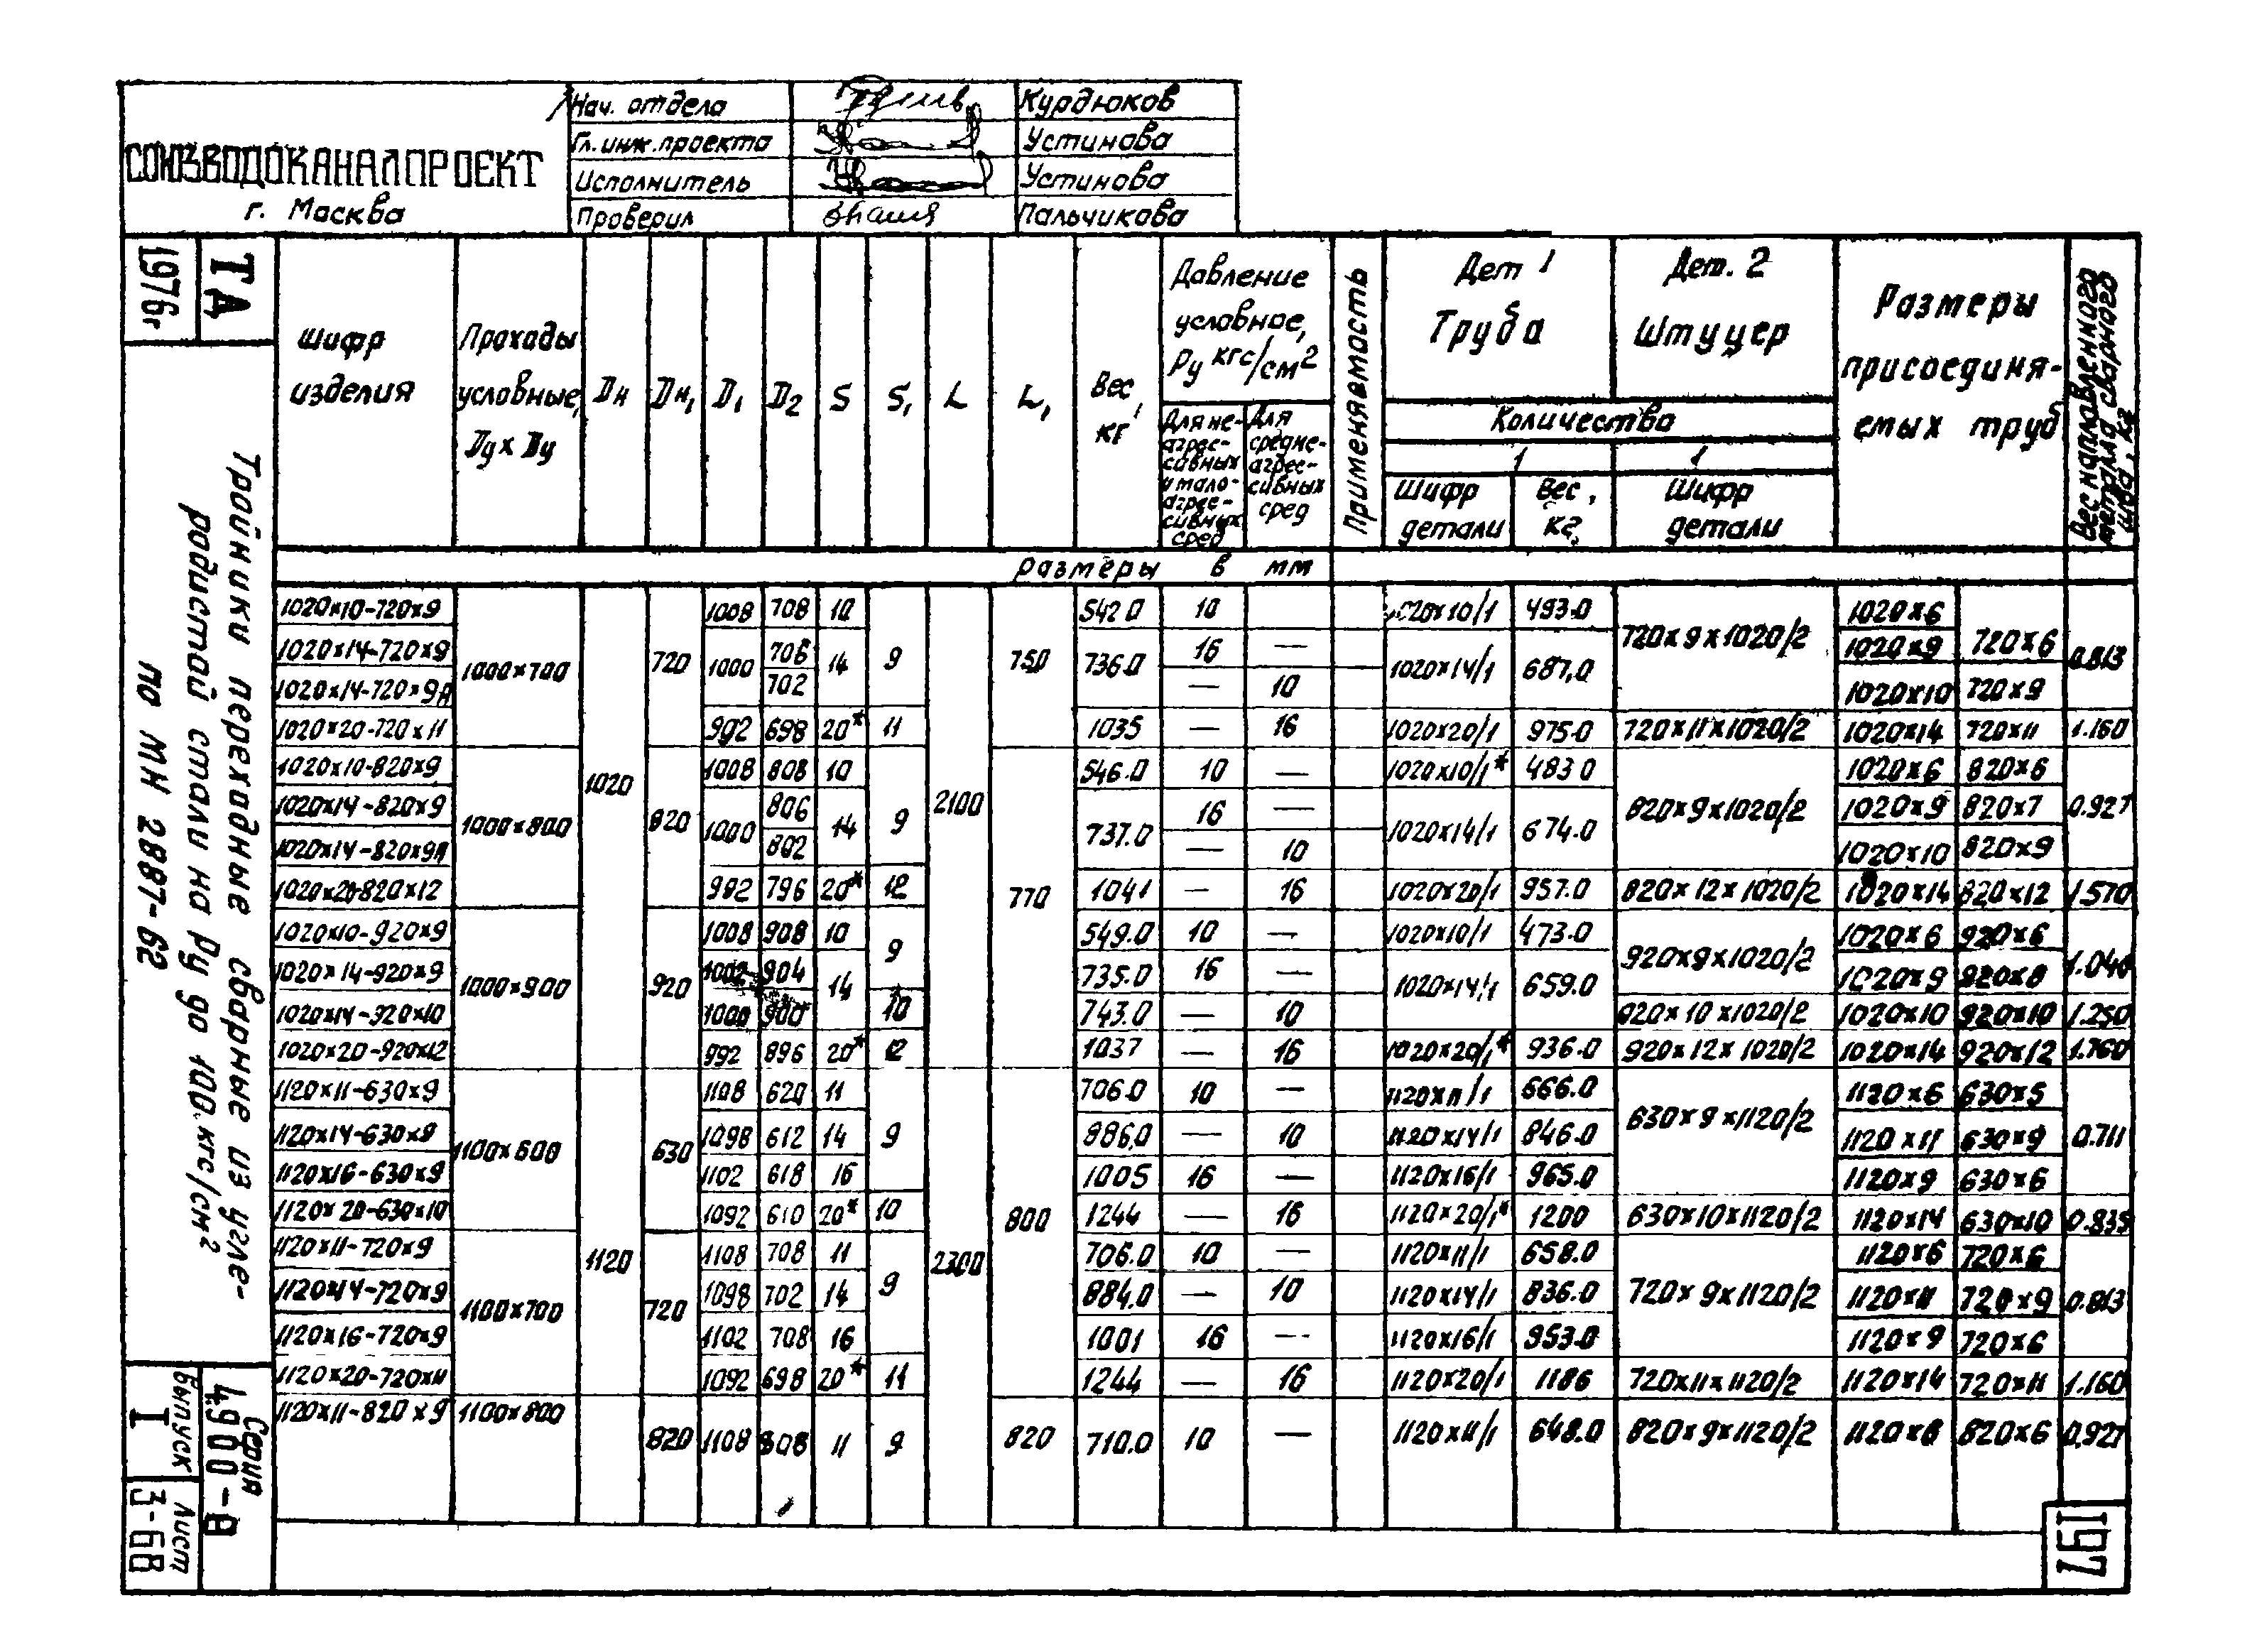 СОЮЗВОДОКАНАЛПРОЕКТ
г. Москва
Нач. отдела Курдюков
Гл. инж. проекта Устинова
Исполнитель Устинова
Проверил Пальчикова
ТД
1976г
Тройники переходные сварные из угле-
родистой стали на Ру до 100 кгс/см2
по МН 2887-62
Серия
4900-8
Выпуск
I
Лист
3-68
Шифр изделия
Проходы условные, Dу x Dу
Dн
Dн1
D1
D2
S
S1
L
L1
Вес, кг
Давление условное, Ру кгс/см2
Для не-агрес-сивных и мало-агрес-сивных сред
Для средне-агрес-сивных сред
Применяемость
Дет 1 Труба
Дет. 2 Штуцер
Количество
1 1
Шифр детали
Вес, кг.
Шифр детали
Размеры присоединя-емых труб
Вес наплавленного металла сварного шва, кг
Размеры в мм
1020x10-720x9 1000x700 1020 720 1008 708 10 9 2100 750 542.0 10 1020x10/1 493.0 720x9x1020/2 1020x6 720x6 0.813
1020x14-720x9 1000 706 14 736.0 16 — 1020x14/1 687,0 1020x9
1020x14-720x9А 702 — 10 1020x10 720x9
1020x20-720x11 992 698 20* 11 1035 — 16 1020x20/1 975.0 720x11x1020/2 1020x14 720x11 1.160
1020x10-820x9 1000x800 820 1008 808 10 9 770 546.0 10 — 1020x10/1* 483.0 820x9x1020/2 1020x6 820x6 0.927
1020x14-820x9 1000 806 14 737.0 16 — 1020x14/1 674.0 1020x9 820x7
1020x14-820x9А 802 — 10 1020x10 820x9
1020x20-820x12 992 796 20* 12 1041 — 16 1020x20/1 957.0 820x12x1020/2 1020x14 820x12 1.570
1020x10-920x9 1000x900 920 1008 908 10 9 549.0 10 — 1020x10/1 473.0 920x9x1020/2 1020x6 920x6 1.040
1020x14-920x9 1002 904 14 735.0 16 — 1020x14/1 659.0 1020x9 920x8
1020x14-920x10 1000 900 10 743.0 — 10 920x10x1020/2 1020x10 920x10 1.250
1020x20-920x12 992 896 20* 12 1037 — 16 1020x20/1* 936.0 920x12x1020/2 1020x14 920x12 1.760
1120x11-630x9 1100x600 1120 630 1108 620 11 9 2300 800 706.0 10 — 1120x11/1 666.0 630x9x1120/2 1120x6 630x5 0.711
1120x14-630x9 1098 612 14 886,0 — 10 1120x14/1 846.0 1120x11 630x9
1120x16-630x9 1102 618 16 1005 16 — 1120x16/1 965.0 1120x9 630x6
1120x20-630x10 1092 610 20* 10 1244 — 16 1120x20/1* 1200 630x10x1120/2 1120x14 630x10 0.835
1120x11-720x9 1100x700 720 1108 708 11 9 706.0 10 — 1120x11/1 658.0 720x9x1120/2 1120x6 720x6 0.813
1120x14-720x9 1098 702 14 884.0 — 10 1120x14/1 836.0 1120x11 720x9
1120x16-720x9 1102 708 16 1001 16 — 1120x16/1 953.0 1120x9 720x6
1120x20-720x11 1092 698 20* 11 1244 — 16 1120x20/1 1186 720x11x1120/2 1120x14 720x11 1.160
1120x11-820x9 1100x800 820 1108 808 11 9 820 710.0 10 — 1120x11/1 648.0 820x9x1120/2 1120x6 820x6 0.927
197